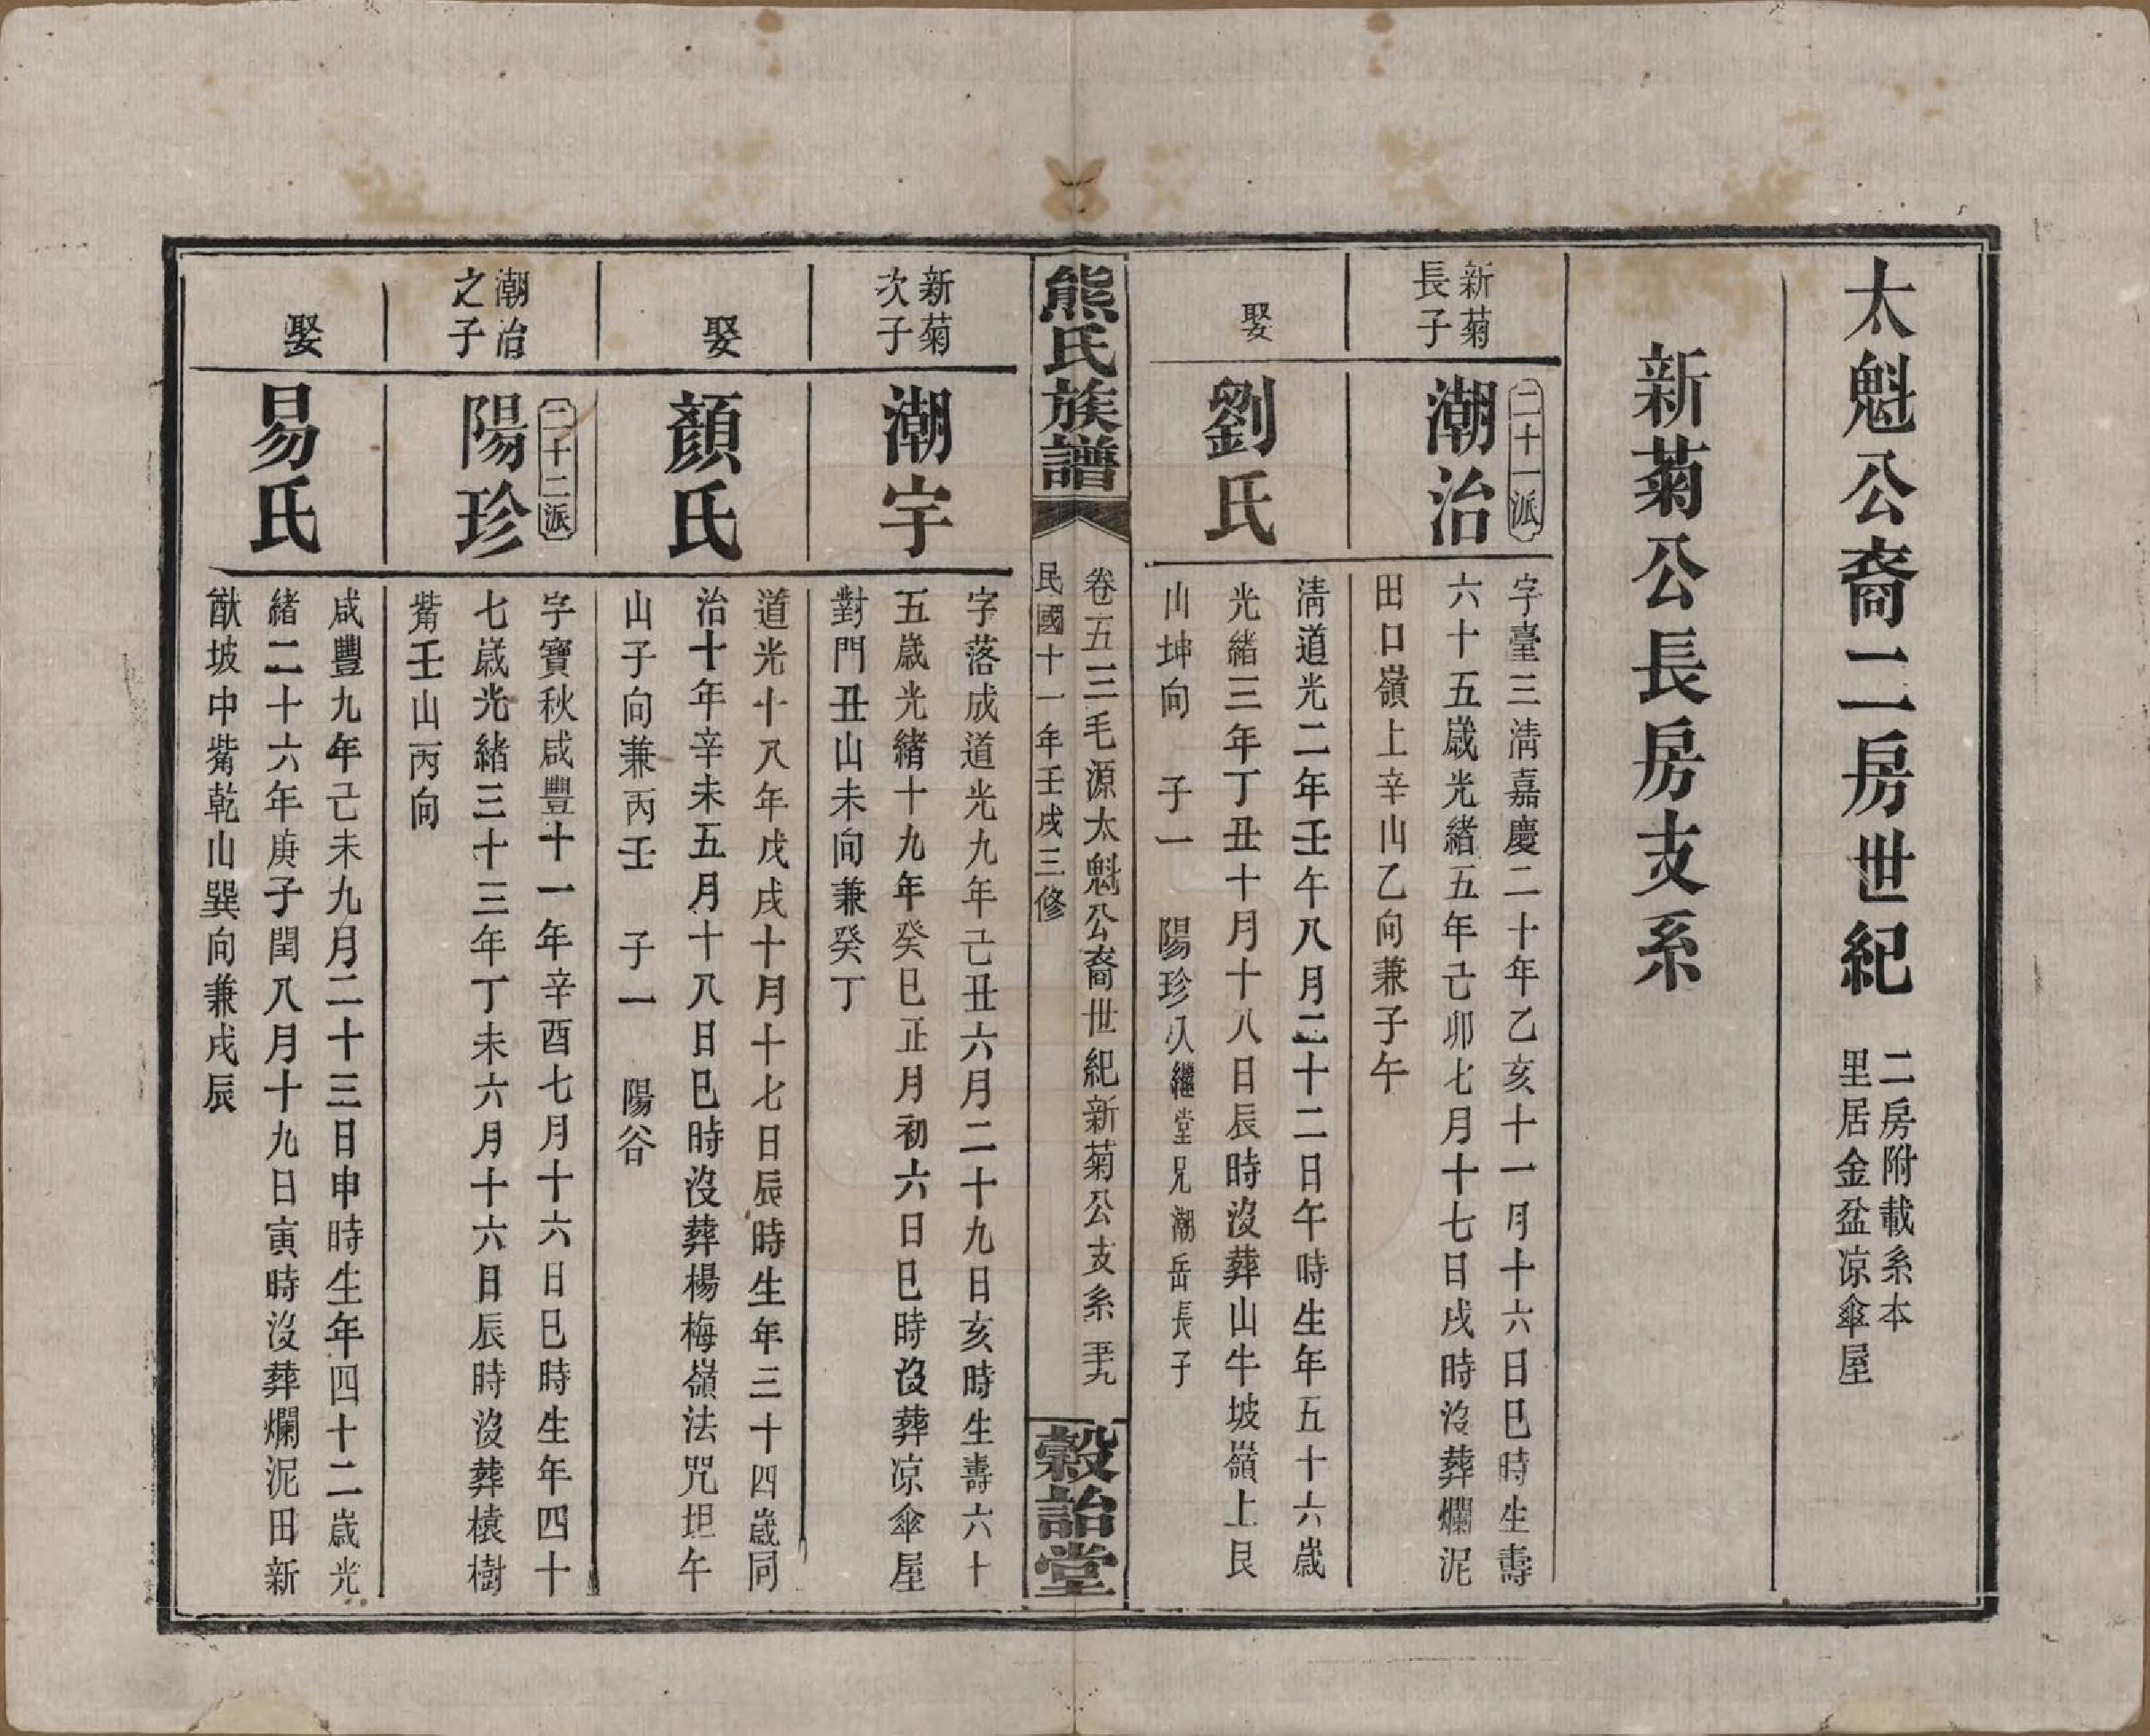 太魁公裔二房世紀
二房附載系本
里居金盆凉傘屋
新菊公長房支系
新菊
長子
二十一派
潮治
字臺三淸嘉慶二十年乙亥十一月十六日巳時生壽
六十五歲光緒五年己卯七月十七日戌時沒葬爛泥
田口嶺上辛山乙向兼子午
娶
劉氏
淸道光二年壬午八月二十二日午時生年五十六歲
光緒三年丁丑十月十八日辰時沒葬山牛坡嶺上艮
山坤向 子一 陽珍 入繼堂兄潮岳長子
熊氏族譜
卷五三毛源太魁公裔世紀新菊公支系 五十九
民國十一年壬戌三修
穀詒堂
新菊
次子
潮宇
字落成道光九年己丑六月二十九日亥時生壽六十
五歲光緒十九年癸巳正月初六日巳時沒葬凉傘屋
對門丑山未向兼癸丁
娶
顏氏
道光十八年戊戌十月十七日辰時生年三十四歲同
治十年辛未五月十八日巳時沒葬楊梅嶺法咒坦午
山子向兼丙壬 子一 陽谷
潮治
之子
二十二派
陽珍
字寶秋咸豐十一年辛酉七月十六日巳時生年四十
七歲光緒三十三年丁未六月十六日辰時沒葬榬樹
觜壬山丙向
娶
易氏
咸豐九年己未九月二十三日申時生年四十二歲光
緒二十六年庚子閏八月十九日寅時沒葬爛泥田新
猷坡中觜乾山巽向兼戌辰